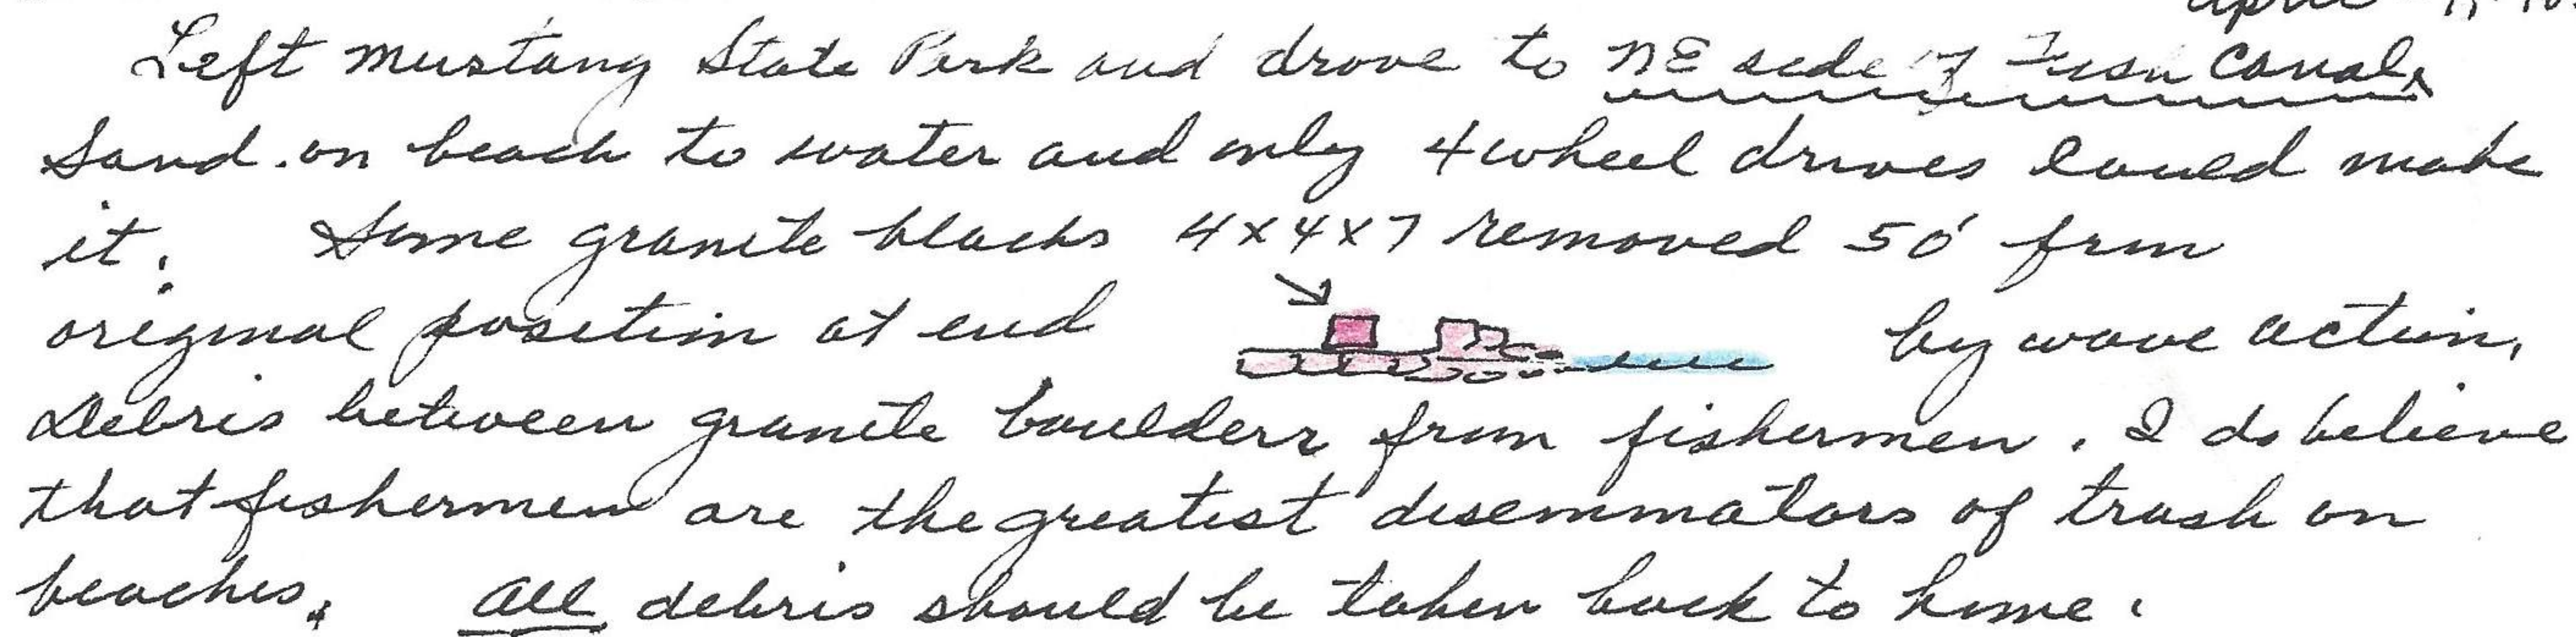 April
Left Mustang State Park and drove to NE side of Fish Canal.
Sand on beach to water and only 4 wheel drives could make
it. Some granite blocks 4x4x7 removed 50' from
original position at end by wave action.
Debris between granite boulders from fishermen. I do believe
that fishermen are the greatest diseminators of trash on
beaches. All debris should be taken back to home.